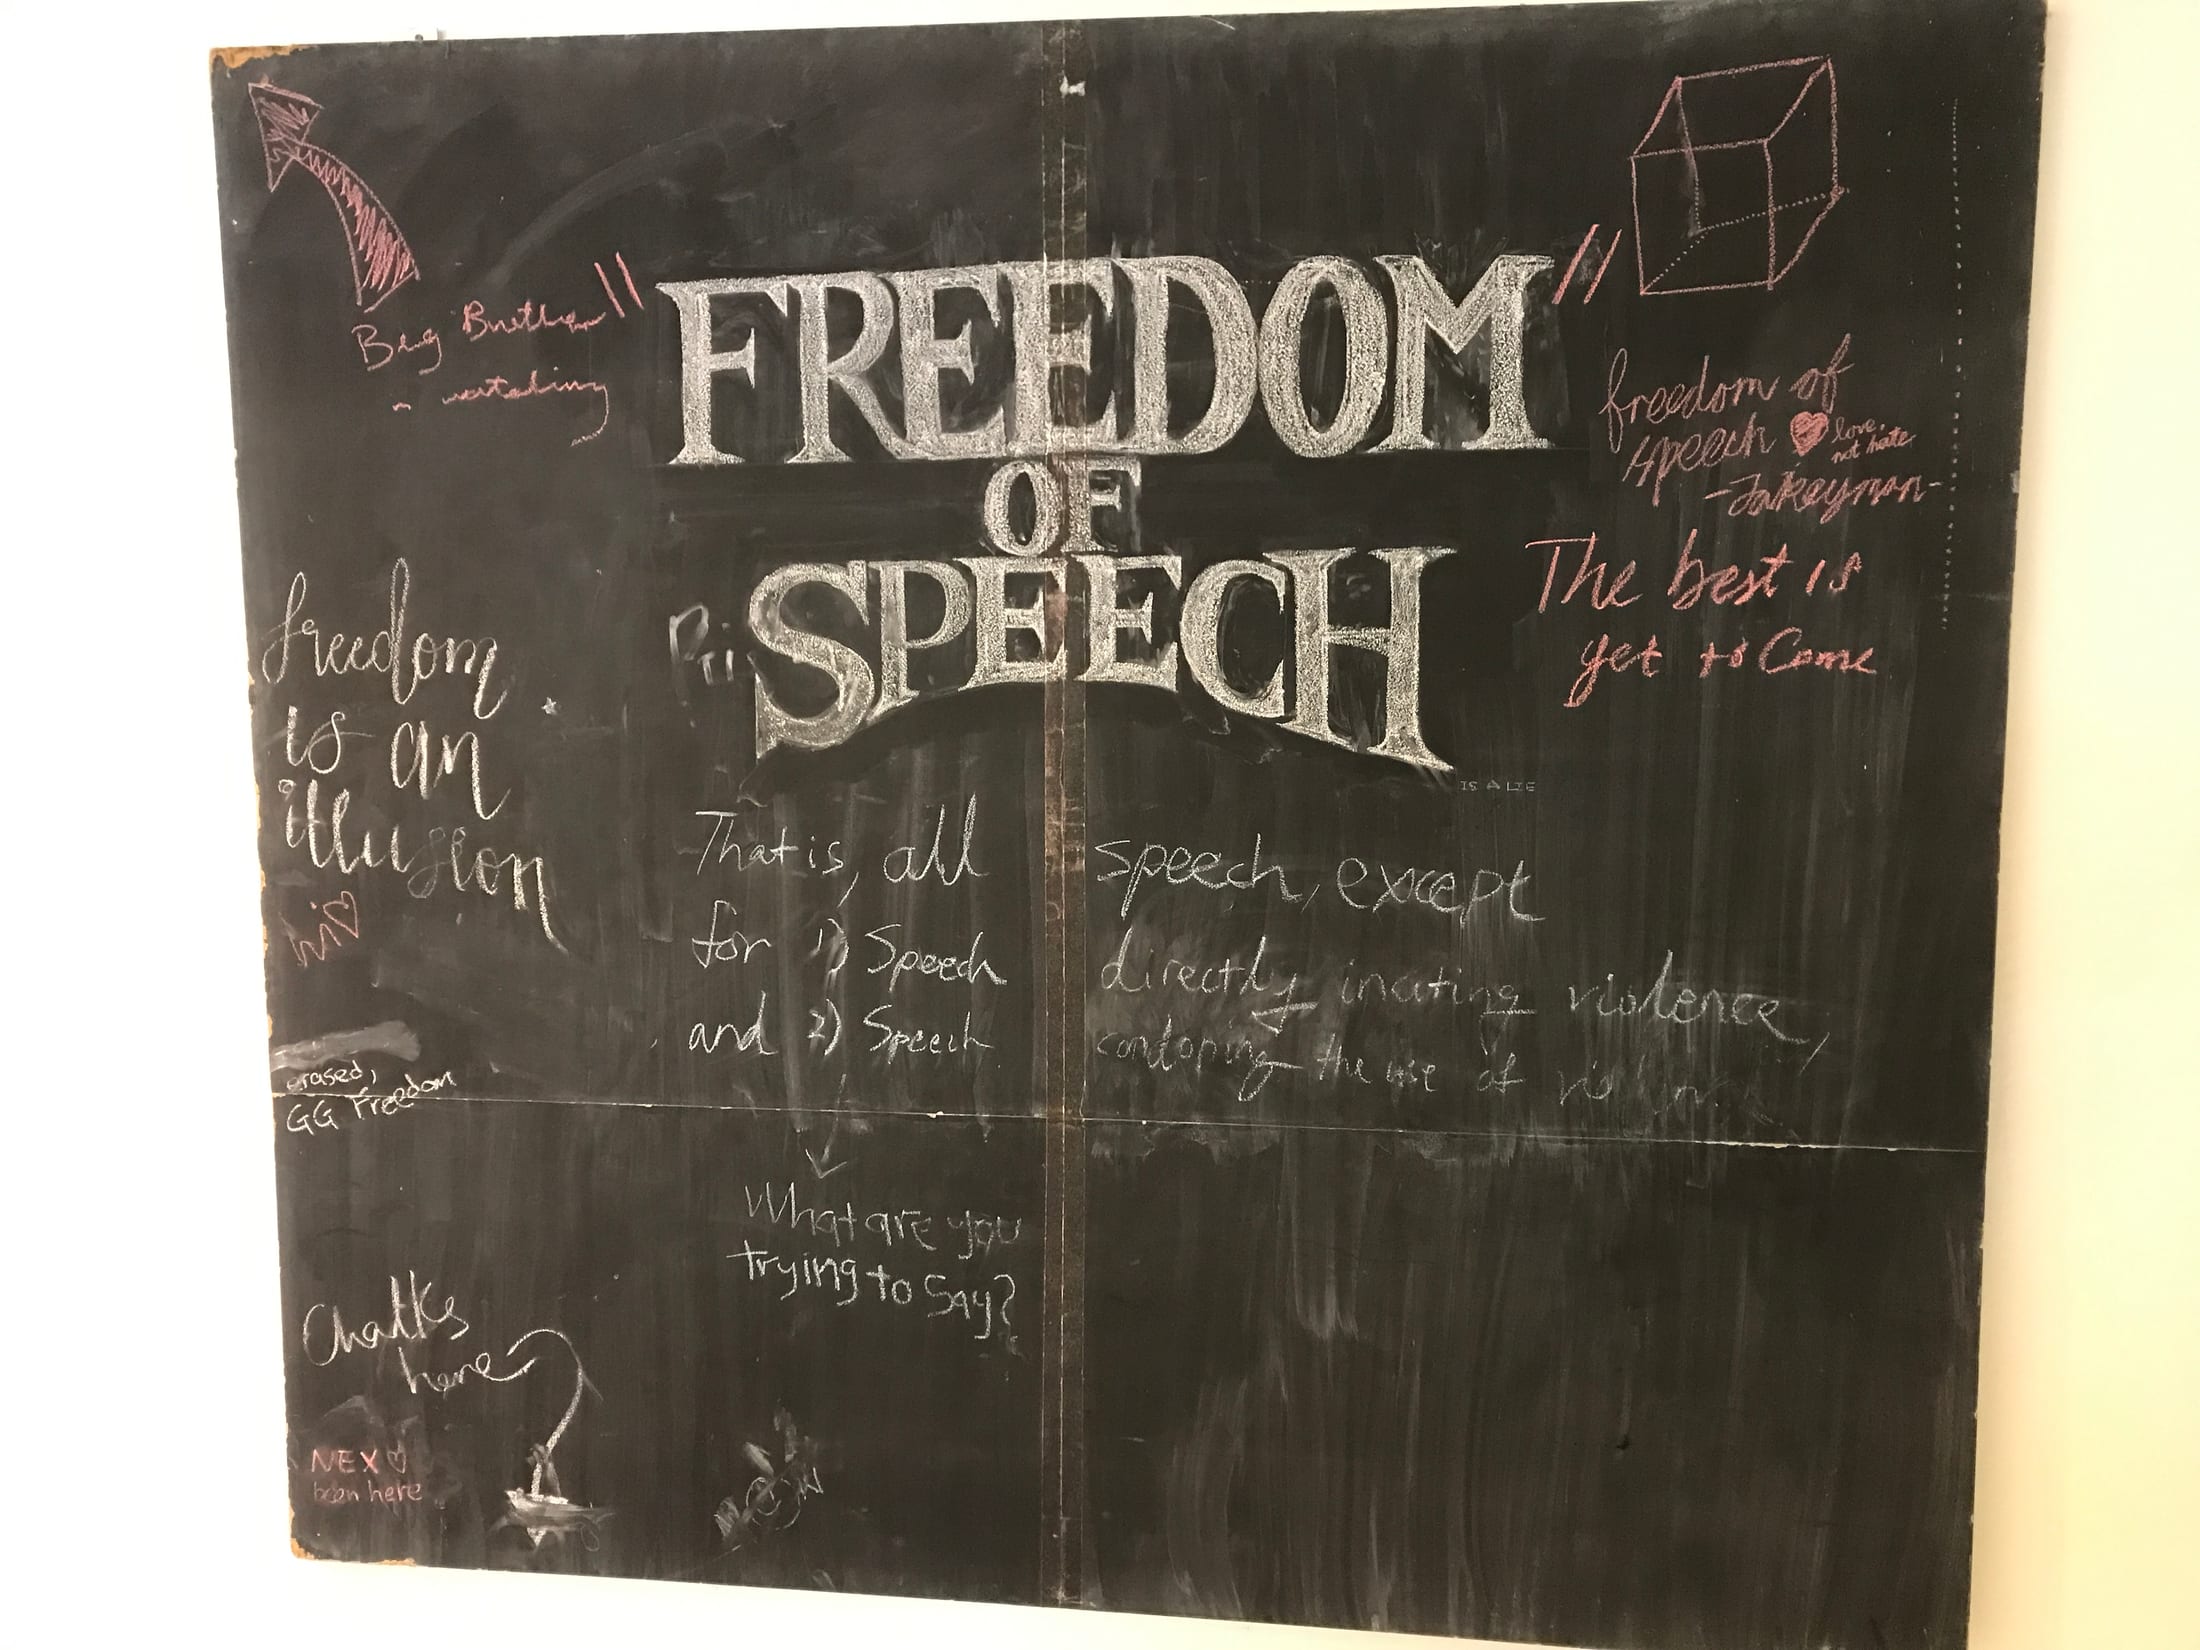 Big Brother
watching
"FREEDOM"
OF
SPEECH
IS A LIE
freedom of
speech love,
not hate
-Jakeyman-
The best is
yet to Come
freedom
is an
illusion
hi
That is, all speech, except
for 1) Speech directly inciting violence,
and 2) Speech condoning the use of
erased,
GG Freedom
What are you
trying to Say?
Chalks
here
NEX
been here